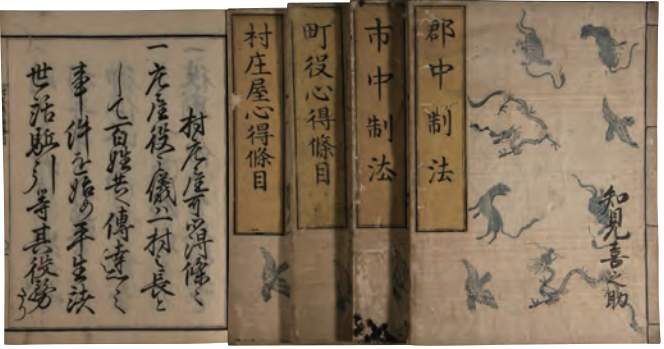 郡中制法
知見喜之助
市中制法
町役心得條目
村庄屋心得條目
村庄屋可心得條々
一庄屋役之儀ハ一村之長と
して百姓共へ傳達之
事件を始め平生諸
世話駈引等其役務